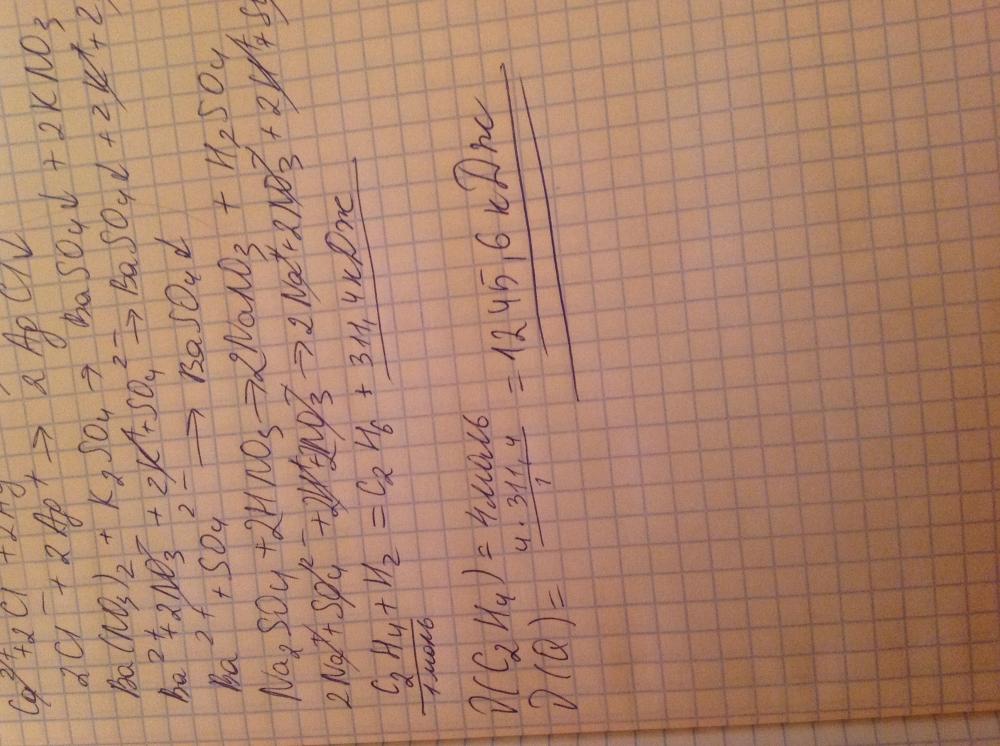 Ca²⁺ + 2Cl⁻ + 2Ag
2Cl⁻ + 2Ag⁺ → 2AgCl↓
Ba(NO₃)₂ + K₂SO₄ → BaSO₄↓ + 2KNO₃
Ba²⁺ + 2NO₃⁻ + 2K⁺ + SO₄²⁻ → BaSO₄↓ + 2K⁺ + 2
Ba²⁺ + SO₄²⁻ → BaSO₄↓
Na₂SO₄ + 2HNO₃ → 2NaNO₃ + H₂SO₄
2Na⁺ + SO₄²⁻ + 2H⁺ + 2NO₃⁻ → 2Na⁺ + 2NO₃⁻ + 2H⁺ + SO
C₂H₄ + H₂ = C₂H₆ + 311,4 кДж
1 моль
ν(C₂H₄) = 4 моль
ν(Q) = 4 · 311,4 / 1 = 1245,6 кДж